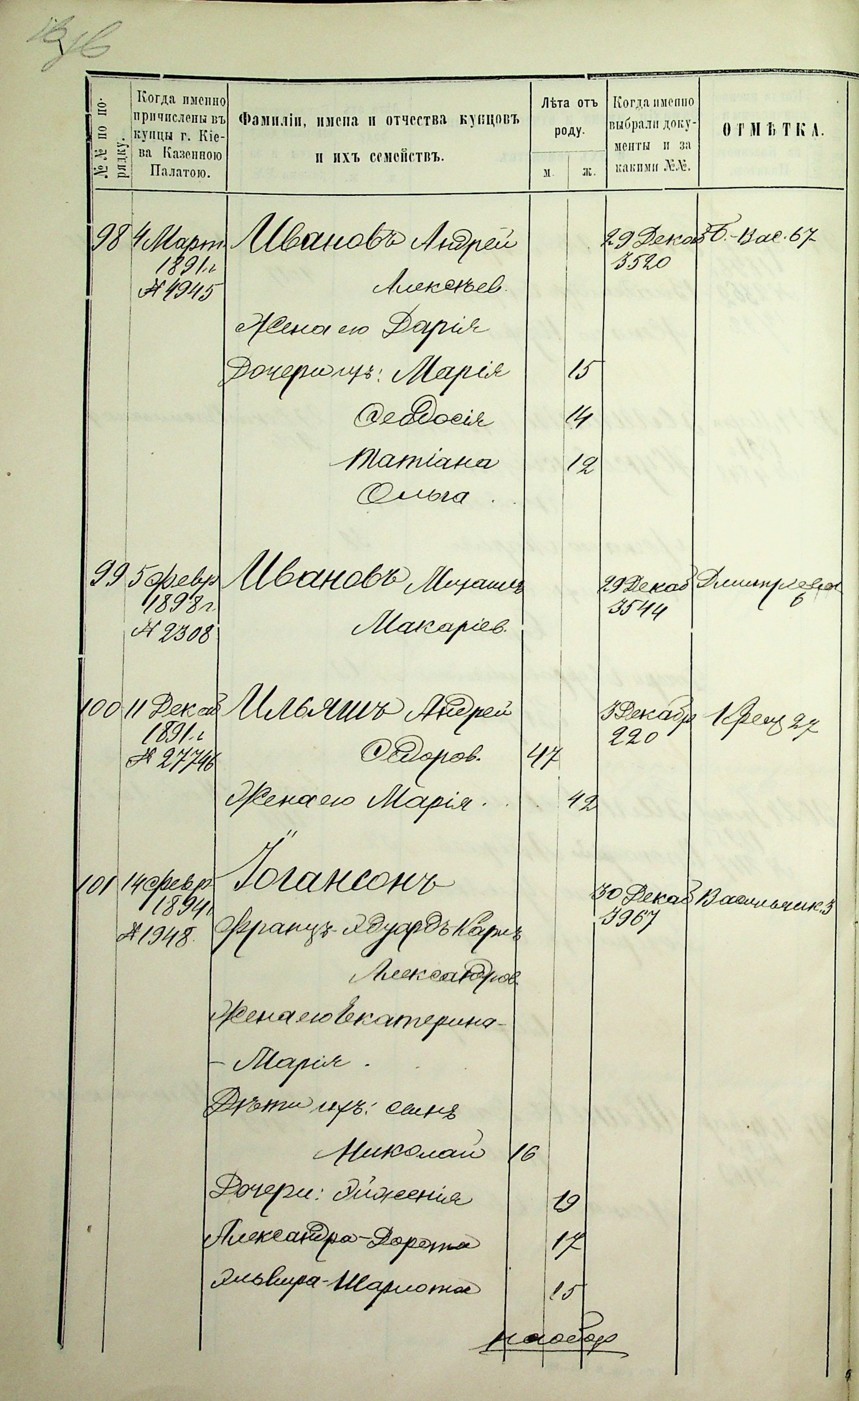 №№ по порядку.
Когда именно причислены въ купцы г. Кіева Казенною Палатою.
Фамиліи, имена и отчества купцовъ и ихъ семействъ.
Лѣта отъ роду.
м. ж.
Когда именно выбрали документы и за какими №№.
ОТМѢТКА.
98 4 Март Ивановъ Андрей 29 Декаб Б.-Вас. 67
1891 г. 3520
№ 4945 Алексѣев.
Жена его Дарія
Дочери ихъ: Марія 15
Ѳеодосія 14
Татіана 12
Ольга .
99 5 февр Ивановъ Михаилъ 29 Декаб
1898 г. 3544 6
№ 2308 Макаріев.
100 11 Декаб Ильяшъ Андрей 3 Декабр Крещ 27
1891 г. 220
№ 27746 Ѳедоров. 47
Жена его Марія . . 42
101 14 февр Іогансонъ 30 Декаб Васильчик. 3
1894 г. 3967
№ 1948. Францъ-Эдуардъ Карлъ
Александров.
Жена его Екатерина-
- Марія .
Дѣти ихъ: сынъ
Николай 16
Дочери: 19
Александра-Доротa 17
Эльвира-Шарлота 15
на обор